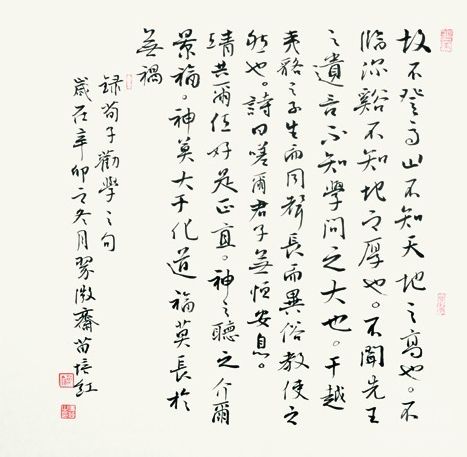 故不登高山不知天地之高也。不
臨深谿不知地之厚也。不聞先王
之遺言不知學問之大也。干越
夷貉之子生而同聲長而異俗教使之
然也。詩曰嗟爾君子無恒安息。
靖共爾位好是正直。神之聽之介爾
景福。神莫大于化道福莫長於
無禍
録荀子勸學之句
歲在辛卯之冬月翠微齋苗培紅